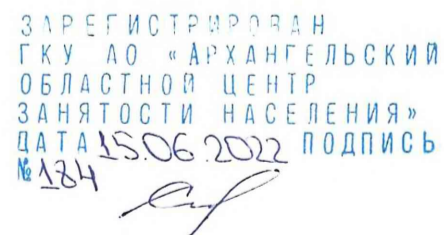 ЗАРЕГИСТРИРОВАН
ГКУ АО «АРХАНГЕЛЬСКИЙ
ОБЛАСТНОЙ ЦЕНТР
ЗАНЯТОСТИ НАСЕЛЕНИЯ»
ДАТА 15.06.2022 ПОДПИСЬ
№ 184